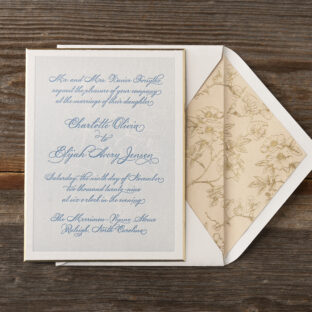 Mr. and Mrs. Daniel Forsythe
request the pleasure of your company
at the marriage of their daughter
Charlotte Olivia
to
Elijah Avery Jensen
Saturday, the ninth day of November
two thousand twenty-nine
at six o'clock in the evening
The Merrimon-Wynne House
Raleigh, North Carolina